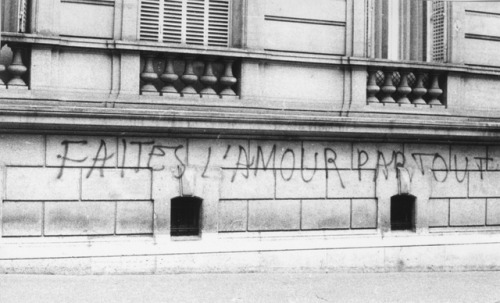 FAITES L'AMOUR PARTOUT